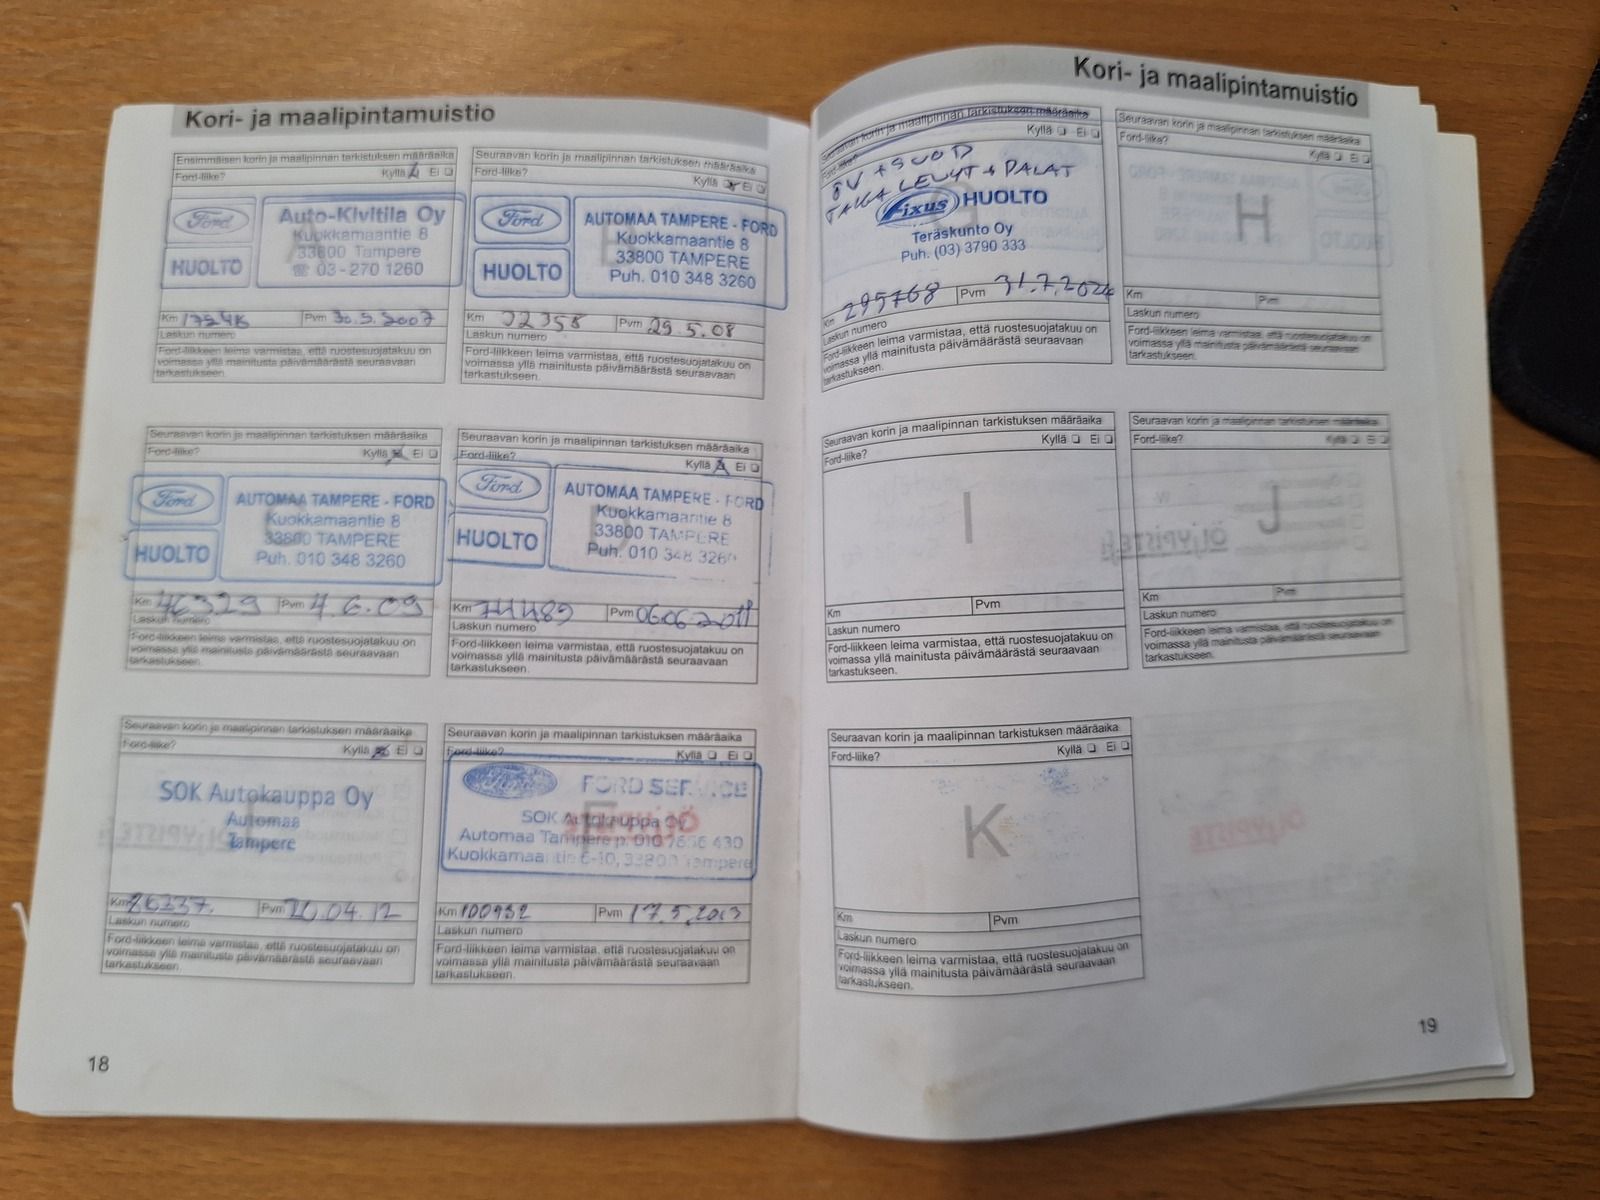 Kori- ja maalipintamuistio
Ensimmäisen korin ja maalipinnan tarkistuksen määräaika
Ford-liike? Kyllä Ei
Ford
HUOLTO
Auto-Kivitila Oy
Kuokkamaantie 8
33800 Tampere
☎ 03-270 1260
Km Pvm 30.5.2007
Laskun numero
Ford-liikkeen leima varmistaa, että ruostesuojatakuu on
voimassa yllä mainitusta päivämäärästä seuraavaan
tarkastukseen.
Seuraavan korin ja maalipinnan tarkistuksen määräaika
Ford-liike? Kyllä Ei
B
Ford
HUOLTO
AUTOMAA TAMPERE - FORD
Kuokkamaantie 8
33800 TAMPERE
Puh. 010 348 3260
Km 32358 Pvm 29.5.08
Laskun numero
Ford-liikkeen leima varmistaa, että ruostesuojatakuu on
voimassa yllä mainitusta päivämäärästä seuraavaan
tarkastukseen.
Seuraavan korin ja maalipinnan tarkistuksen määräaika
Ford-liike? Kyllä Ei
Ford
HUOLTO
AUTOMAA TAMPERE - FORD
Kuokkamaantie 8
33800 TAMPERE
Puh. 010 348 3260
Km 46329 Pvm 4.6.09
Laskun numero
Ford-liikkeen leima varmistaa, että ruostesuojatakuu on
voimassa yllä mainitusta päivämäärästä seuraavaan
tarkastukseen.
Seuraavan korin ja maalipinnan tarkistuksen määräaika
Ford-liike? Kyllä Ei
D
Ford
HUOLTO
AUTOMAA TAMPERE - FORD
Kuokkamaantie 8
33800 TAMPERE
Puh. 010 348 3260
Km 74489 Pvm 06.06.2011
Laskun numero
Ford-liikkeen leima varmistaa, että ruostesuojatakuu on
voimassa yllä mainitusta päivämäärästä seuraavaan
tarkastukseen.
Seuraavan korin ja maalipinnan tarkistuksen määräaika
Ford-liike? Kyllä Ei
SOK Autokauppa Oy
Automaa
Tampere
Km 86337. Pvm 20.04.12
Laskun numero
Ford-liikkeen leima varmistaa, että ruostesuojatakuu on
voimassa yllä mainitusta päivämäärästä seuraavaan
tarkastukseen.
Seuraavan korin ja maalipinnan tarkistuksen määräaika
Ford-liike? Kyllä Ei
F
FORD SERVICE
SOK Autokauppa Oy
Automaa Tampere p. 010 7656 430
Kuokkamaantie 6-10, 33800 Tampere
Km 100932 Pvm 17.5.2013
Laskun numero
Ford-liikkeen leima varmistaa, että ruostesuojatakuu on
voimassa yllä mainitusta päivämäärästä seuraavaan
tarkastukseen.
18
Kori- ja maalipintamuistio
Seuraavan korin ja maalipinnan tarkistuksen määräaika
Ford-liike? Kyllä Ei
ÖV + SUOD
TAKALEVYT + PALAT
Fixus HUOLTO
Teräskunto Oy
Puh. (03) 3790 333
Km 295768 Pvm 31.7.2024
Laskun numero
Ford-liikkeen leima varmistaa, että ruostesuojatakuu on
voimassa yllä mainitusta päivämäärästä seuraavaan
tarkastukseen.
Seuraavan korin ja maalipinnan tarkistuksen määräaika
Ford-liike? Kyllä Ei
H
Km Pvm
Laskun numero
Ford-liikkeen leima varmistaa, että ruostesuojatakuu on
voimassa yllä mainitusta päivämäärästä seuraavaan
tarkastukseen.
Seuraavan korin ja maalipinnan tarkistuksen määräaika
Ford-liike? Kyllä Ei
I
Km Pvm
Laskun numero
Ford-liikkeen leima varmistaa, että ruostesuojatakuu on
voimassa yllä mainitusta päivämäärästä seuraavaan
tarkastukseen.
Seuraavan korin ja maalipinnan tarkistuksen määräaika
Ford-liike? Kyllä Ei
J
Km Pvm
Laskun numero
Ford-liikkeen leima varmistaa, että ruostesuojatakuu on
voimassa yllä mainitusta päivämäärästä seuraavaan
tarkastukseen.
Seuraavan korin ja maalipinnan tarkistuksen määräaika
Ford-liike? Kyllä Ei
K
Km Pvm
Laskun numero
Ford-liikkeen leima varmistaa, että ruostesuojatakuu on
voimassa yllä mainitusta päivämäärästä seuraavaan
tarkastukseen.
19